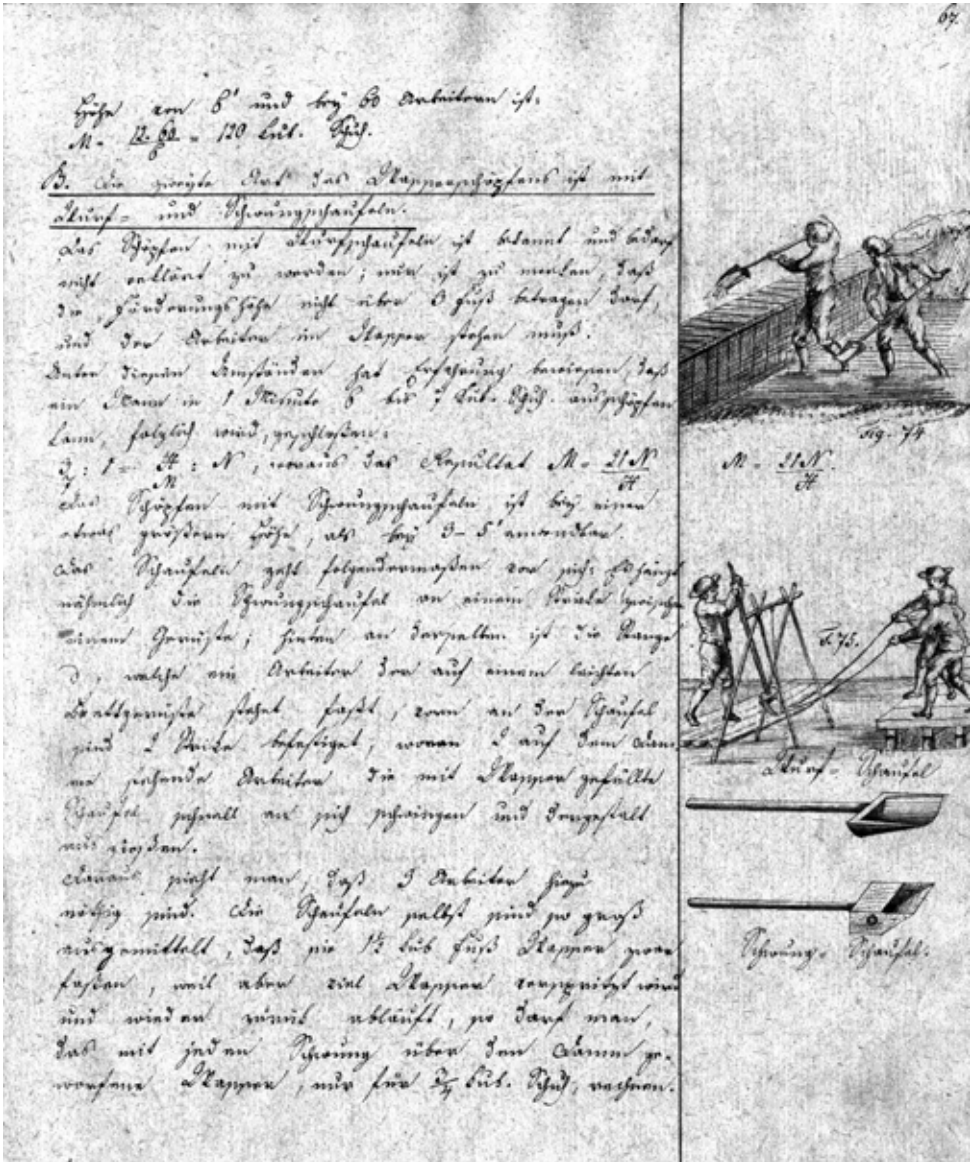 67.
Höhe von 6' und bey 60 Arbeitern ist:
M = 12. 60. = 120 Cub. Schuh.
6
B. Die zweyte Art des Wasserschöpfens ist mit
Wurf- und Schwungschaufeln.
Das Schöpfen mit Wurfschaufeln ist bekannt und bedarf
nicht erklärt zu werden; nur ist zu merken, daß
die Förderungshöhe nicht über 3 Fuß betragen darf,
und der Arbeiter im Wasser stehen muß.
Unter diesen Umständen hat Erfahrung bewiesen, daß
ein Mann in 1 Minute 6 bis 7 Cub. Schuh ausschöpfen
kann, folglich wird geschloßen:
: 1 = H/M : N, woraus das Resultat M = 21 N/H
Das Schöpfen mit Schwungschaufeln ist bey einer
etwas größern Höhe, als bey 3–5' anwendbar.
Das Schaufeln geht folgendermaßen vor sich: Es hängt
nähmlich die Schwungschaufel an einem Stricke zwischen
einem Gerüste; hinten an derselben ist die Stange
, welche ein Arbeiter der auf einem leichten
Brettgerüste stehet faßt, vorn an der Schaufel
sind 2 Stricke befestiget, woran 2 auf dem Dam-
me stehende Arbeiter die mit Wasser gefüllte
Schaufel schnell an sich schwingen und dergestalt
ausgießen.
Daraus sieht man, daß 3 Arbeiter hiezu
nöthig sind. Die Schaufeln selbst sind so groß
ausgemittelt, daß sie 1½ Cub Fuß Wasser zwar
faßen, weil aber viel Wasser verspritzt wird
und wieder zurück abläuft, so darf man,
das mit jeden Schwung über den Damm ge-
worfene Wasser, nur für ¾ Cub. Schuh, rechnen.
Fig. 74
M = 21 N/H
F. 75.
Wurf-Schaufel
Schwung-Schaufel.